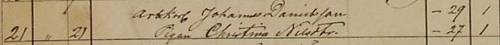 Arbkarl Johannes Danielsson — 29 1
21 " 21 Pigan Christina Nilsdr. — 27 1